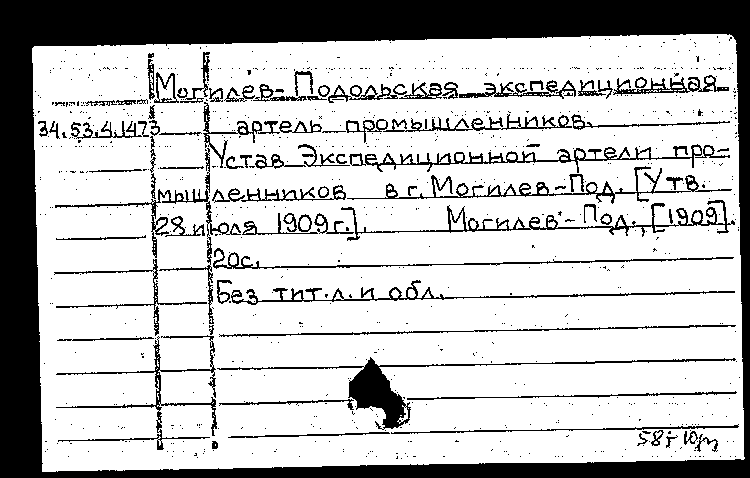 Могилев-Подольская экспедиционная
34.53.4.1473 артель промышленников.
Устав Экспедиционной артели про-
мышленников в г. Могилев-Под. [Утв.
28 июля 1909 г.]. Могилев-Под., [1909].
20с.
Без тит.л. и обл.